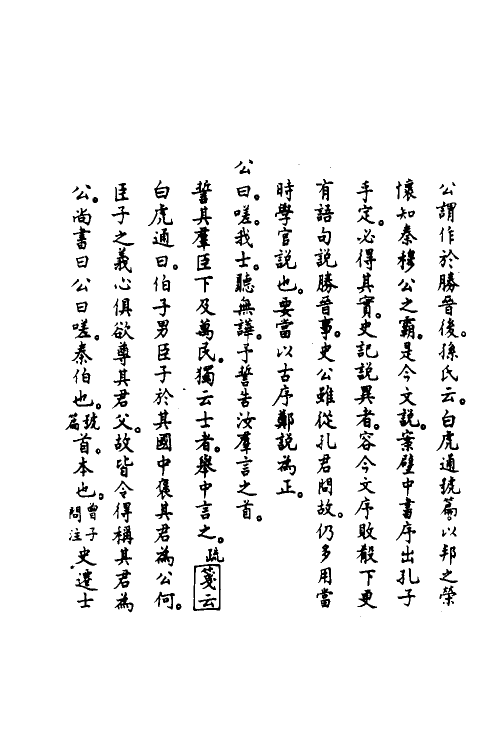 公謂作於勝晉後。孫氏云。白虎通號篇以邦之榮
懷知秦穆公之霸。是今文說。案壁中書序出孔子
手定。必得其實。史記說異者。容今文序敗散下更
有語句說勝晉事。史公雖從孔君問故。仍多用當
時學官說也。要當以古序鄭說為正。
公曰。嗟。我士。聽無譁。予誓告汝羣言之首。
誓其羣臣下及萬民。獨云士者。舉中言之。疏 箋云
白虎通曰。伯子男臣子於其國中褒其君為公何。
臣子之義心俱欲尊其君父。故皆令得稱其君為
公。尚書曰公曰嗟。秦伯也。號篇 首。本也。曾子問注 史遷士